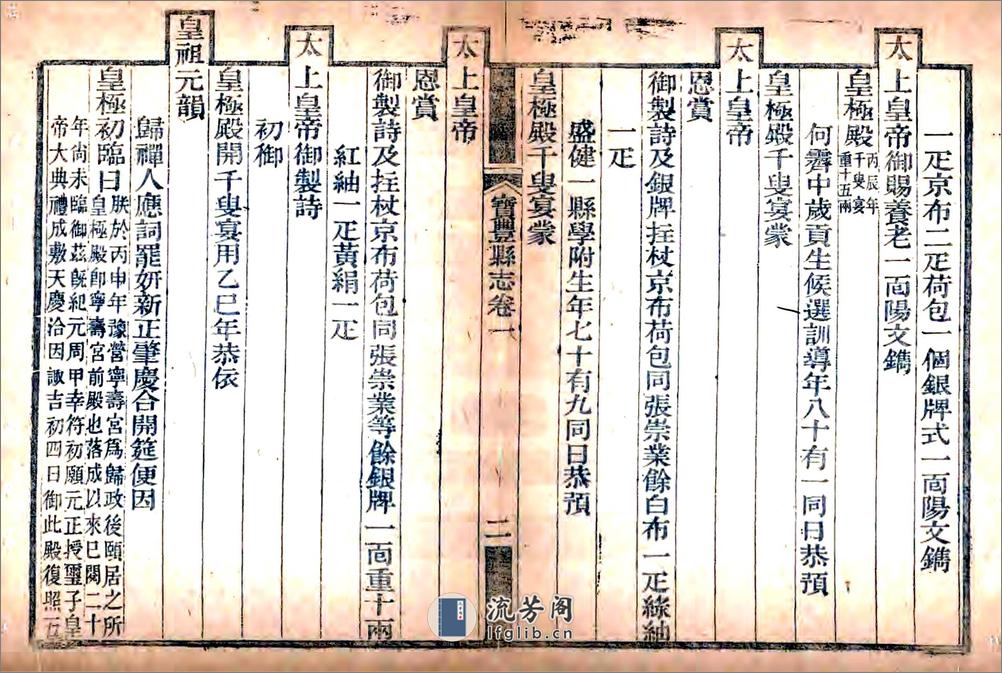 一疋京布二疋荷包一個銀牌式一面陽文鐫
太上皇帝御賜養老一面陽文鐫
皇極殿丙辰年千叟宴重十五兩
何霽中歲貢生候選訓導年八十有一同日恭預
皇極殿千叟宴蒙
太上皇帝
恩賞
御製詩及銀牌拄杖京布荷包同張崇業餘白布一疋綠紬
一疋
盛健一縣學附生年七十有九同日恭預
皇極殿千叟宴蒙
寶豐縣志卷一
二
太上皇帝
恩賞
御製詩及拄杖京布荷包同張崇業等餘銀牌一面重十兩
紅紬一疋黃絹一疋
太上皇帝御製詩
初御
皇極殿開千叟宴用乙巳年恭依
皇祖元韻
歸禪人應詞罷妍新正肇慶合開筵便因
皇極初臨日朕於丙申年豫營寧壽宮為歸政後頤居之所
皇極殿即寧壽宮前殿也落成以來已閱二十
年尚未臨御茲旣紀元周甲幸符初願元正授璽子皇
帝大典禮成敷天慶洽因諏吉初四日御此殿復照五
流芳阁
lfglib.cn